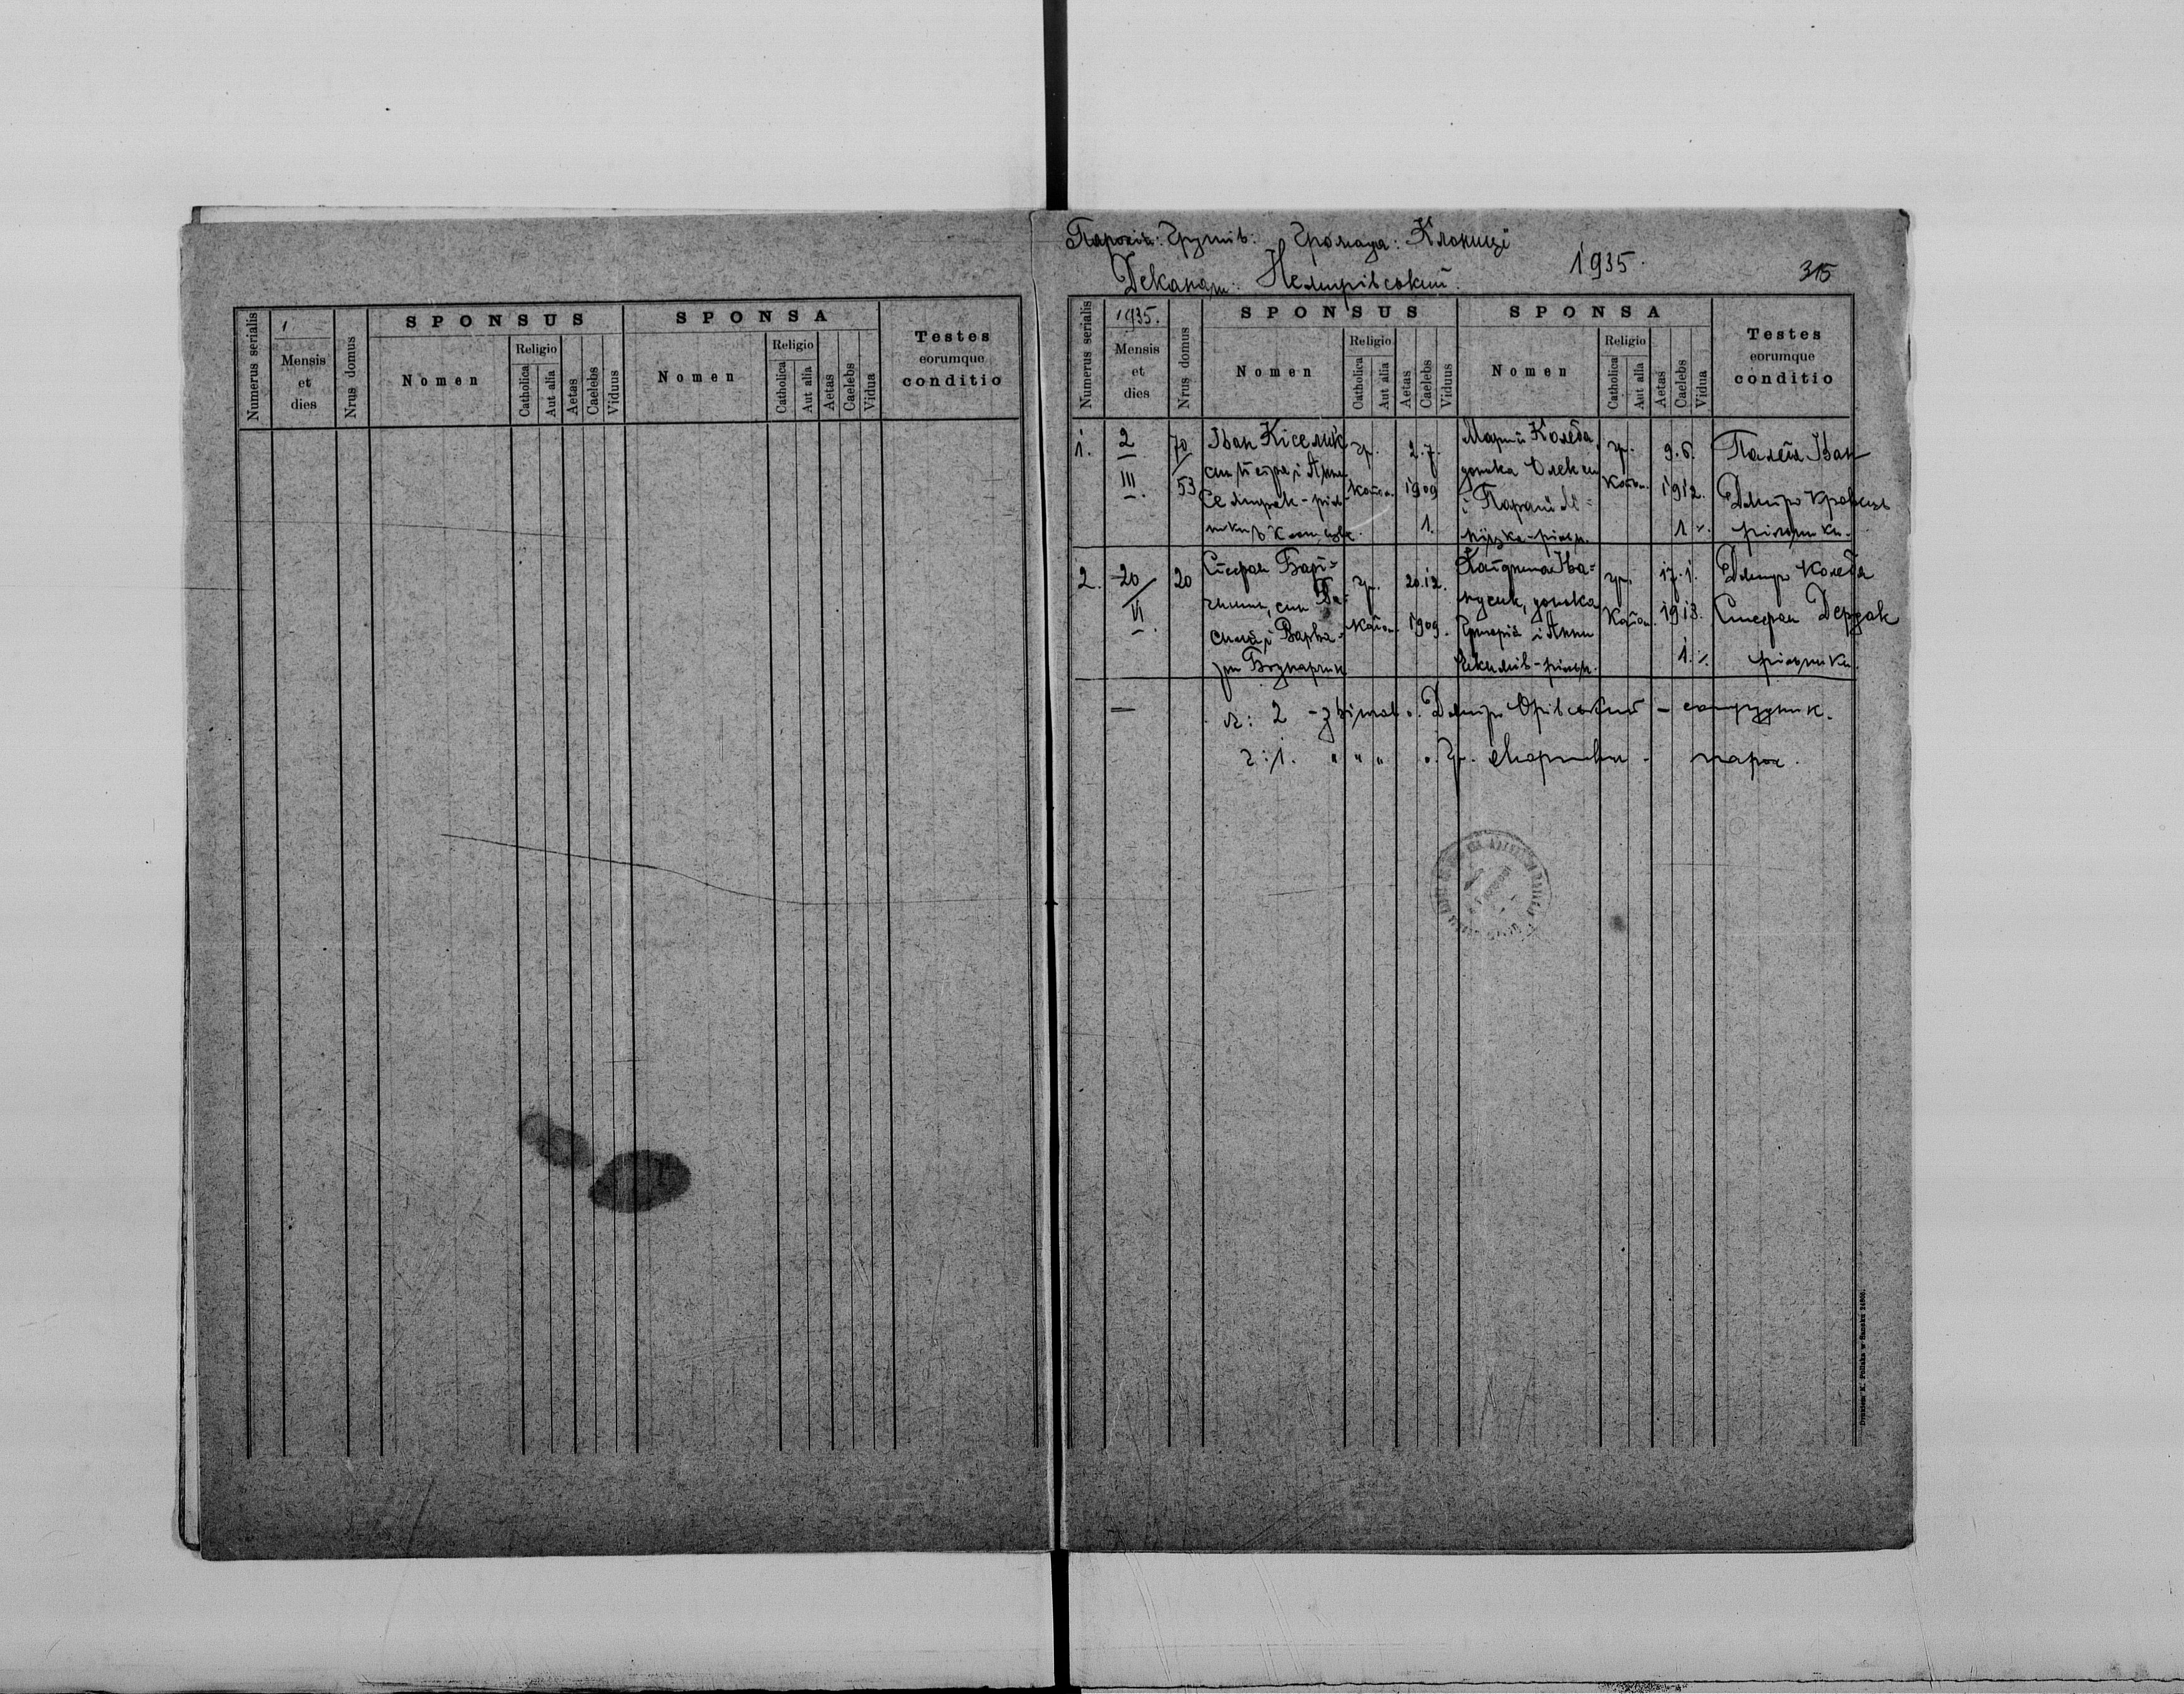 Numerus serialis
1
Mensis
et
dies
Nrus domus
SPONSUS
Nomen
Religio
Catholica
Aut alia
Aetas
Caelebs
Viduus
SPONSA
Nomen
Religio
Catholica
Aut alia
Aetas
Caelebs
Vidua
Testes
eorumque
conditio
Парохія: Грушів. Громада: Клониці
Деканат: Немирівський.
1935
315
Numerus serialis
1935.
Mensis
et
dies
Nrus domus
SPONSUS
Nomen
Religio
Catholica
Aut alia
Aetas
Caelebs
Viduus
SPONSA
Nomen
Religio
Catholica
Aut alia
Aetas
Caelebs
Vidua
Testes
eorumque
conditio
1.
2
III.
70
53
Іван Кіселик
син Петра і Анни
гр.
Катол.
2.7.
1909
1.
Марія Колеба
донька Олекси
і Парані
гр.
Катол.
9.6.
1912.
1
Палей Іван
Дмитро Кравець
рільники.
2.
20
VI.
20
Стефан Бари-
син Ва-
силя і Варва-
ри Боднарчик
гр.
Катол.
20.12.
1909.
Катерина Іва-
нусик, донька
Григорія і Анни
рільн.
гр.
Катол.
17.1.
1913.
1.
Дмитро Колеба
Стефан Дердак
рільники.
ч: 2 о. Дмитро Орівський – сотрудник.
ч: 1. " " " о. Гр. парох.
Drukiem K. Pollaka w Sanoku